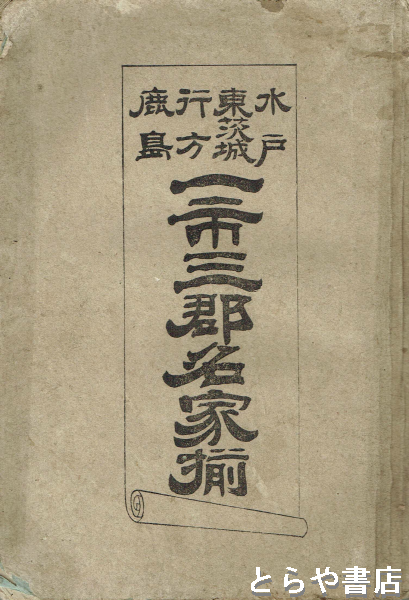 水戸
東茨城
行方
鹿島
一市三郡名家揃
とらや書店